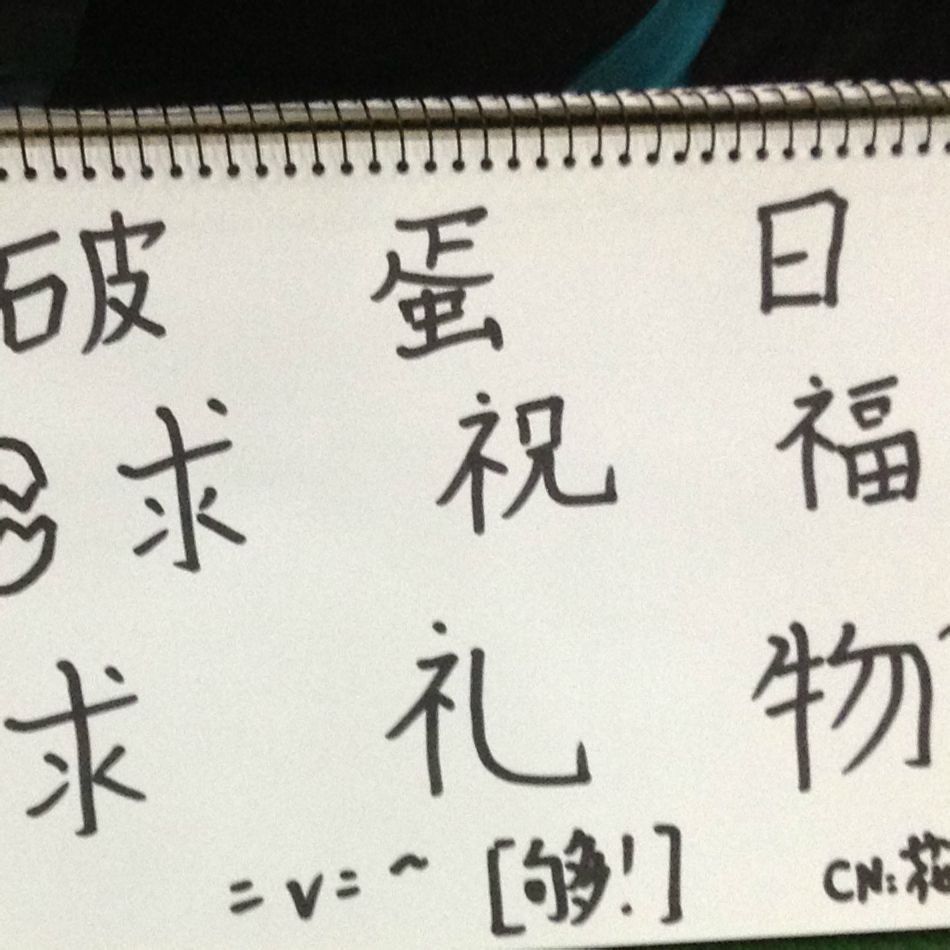 破蛋日
求祝福
求礼物
=v=~[够!] CN: